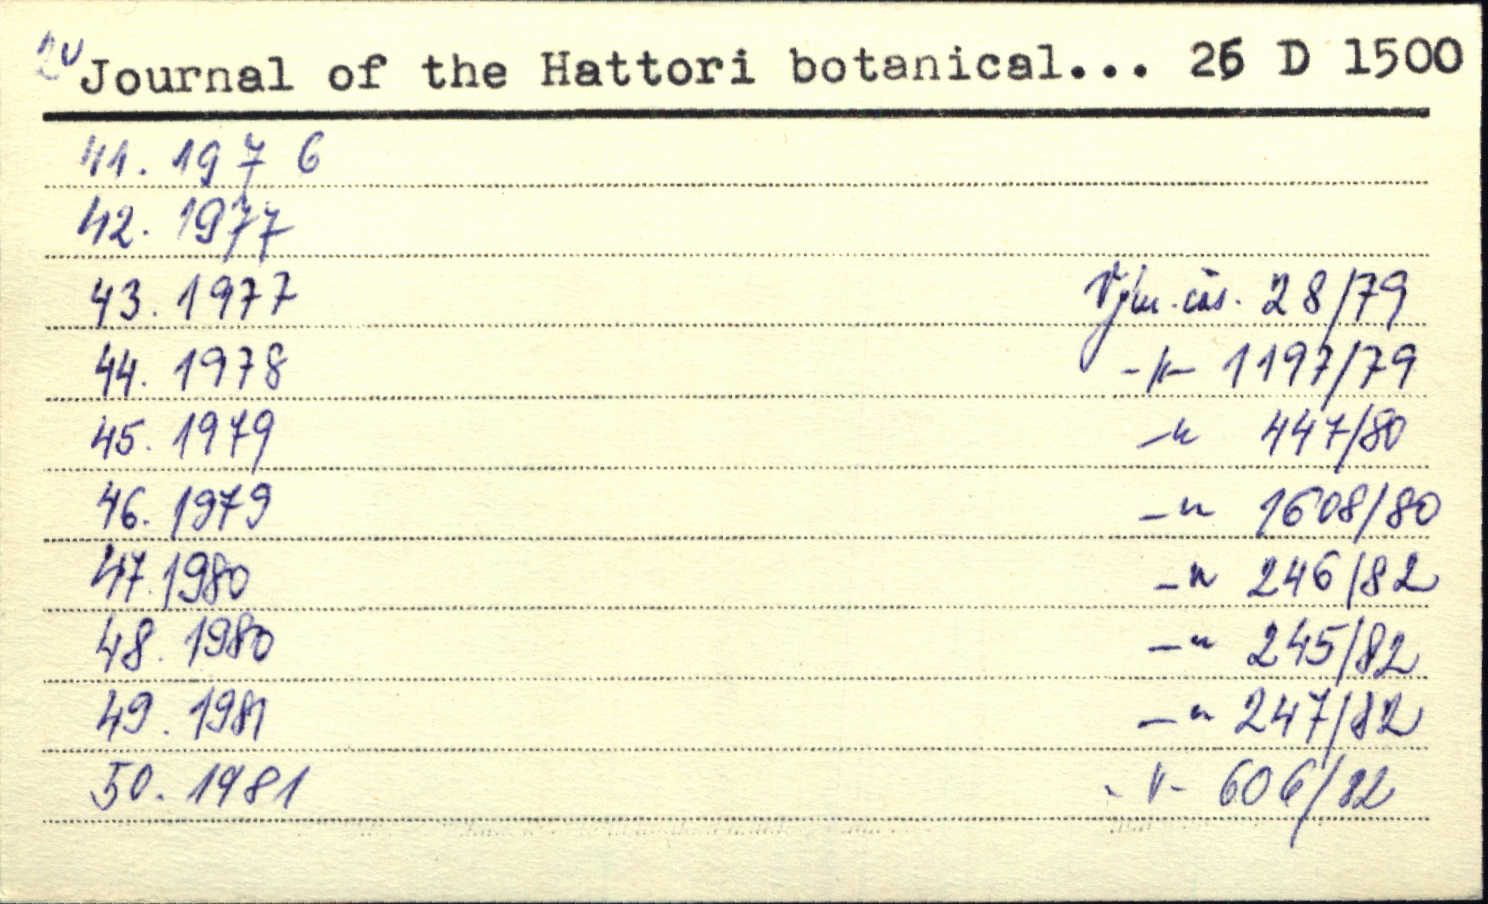 Journal of the Hattori botanical... 26 D 1500
41. 1976
42. 1977
43. 1977 Vým. čás. 28/79
44. 1978 -"- 1197/79
45. 1979 -" 447/80
46. 1979 -" 1608/80
47. 1980 -" 246/82
48. 1980 -" 245/82
49. 1981 -" 247/82
50. 1981 -"- 606/82